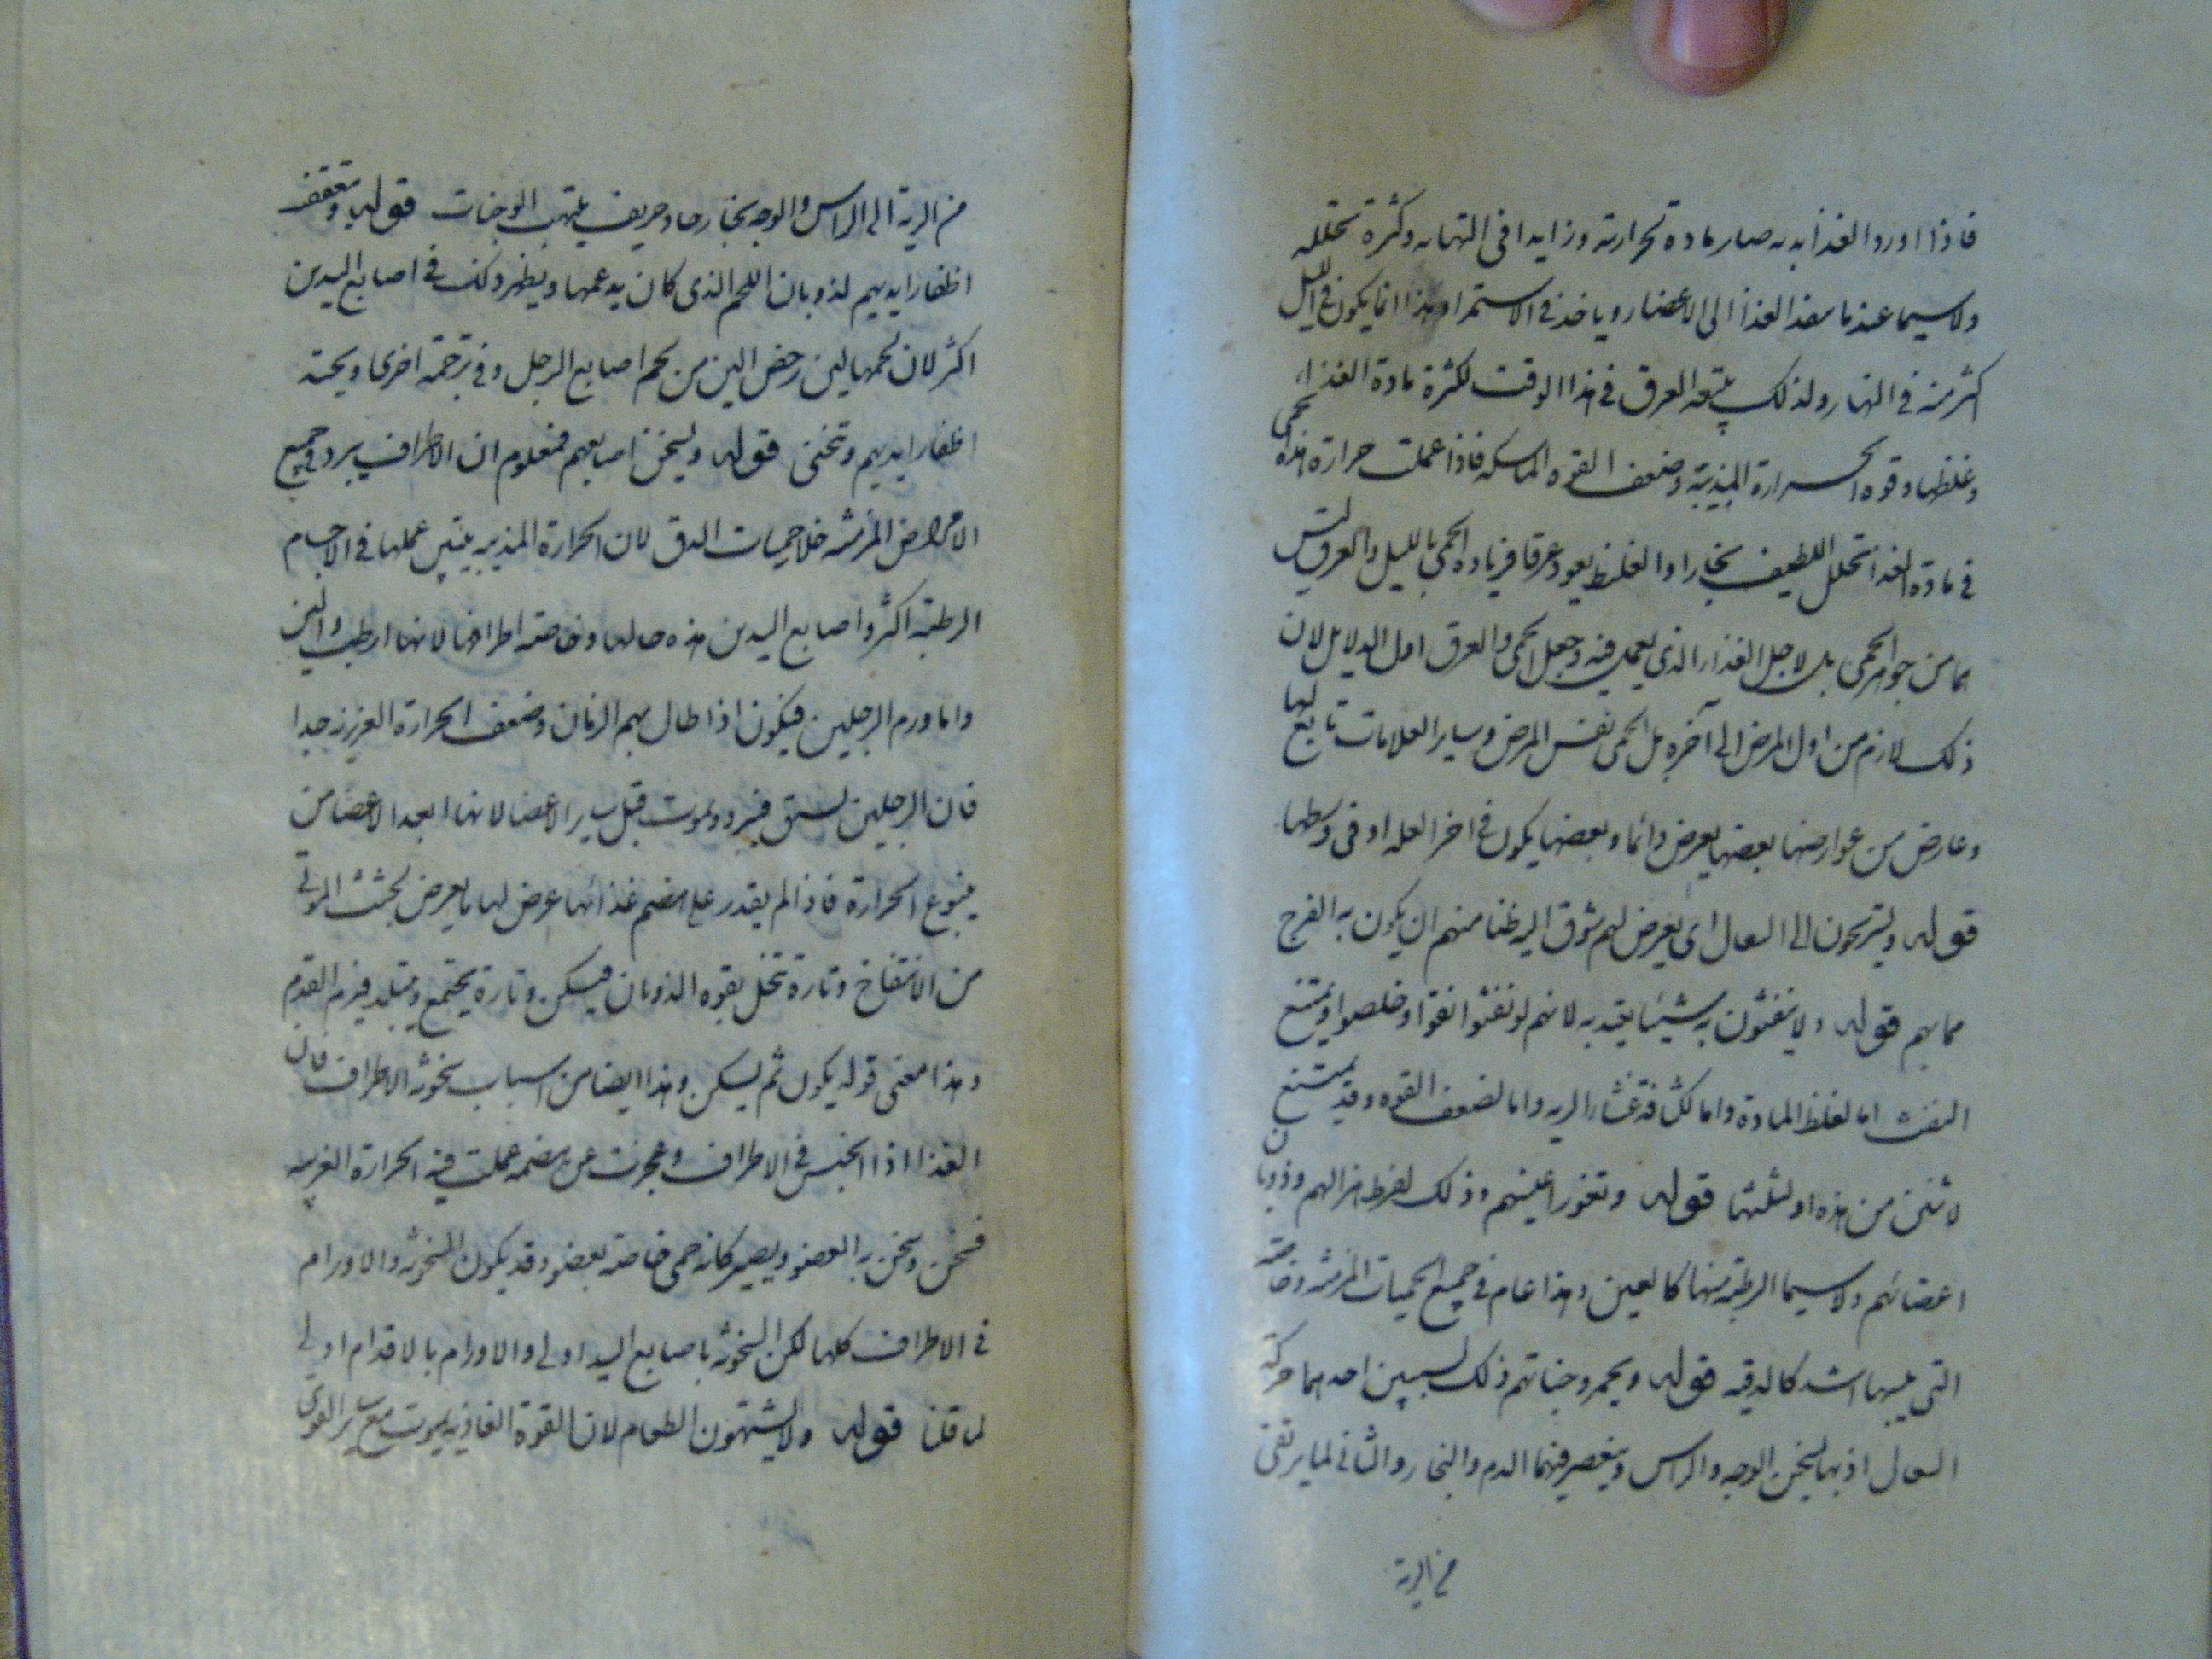 فاذا اورد الغذا بدنه صار مادة لحرارته وزايدا فى التهابه وكثرة تحلله
ولا سيما عندما ينفذ الغذا الى الاعضا ويأخذ فى الاستمرا وهذا انما يكون فى الليل
اكثر منه فى النهار ولذلك يتبعه العرق فى هذا الوقت لكثرة مادة الغذاء
وغلظها وقوة الحرارة المذيبة وضعف القوه الماسكه فاذا عملت حرارة هذه الحمى
فى مادة الغذا تحلل اللطيف بخارا والغليظ يعود عرقا فزيادة الحمى بالليل والعرق ليس
هما من جوهر الحمى بل لاجل الغذاء الذى يعمل فيه وجعل الحمى والعرق اول الدلايل لان
ذلك لازم من اول المرض الى آخره بل الحمى نفس المرض وساير العلامات تابع لها
وعارض من عوارضها بعضها يعرض دائما وبعضها يكون فى اخر العله او فى وسطها
قوله ويستريحون الى السعال اى يعرض لهم شوق اليه ظنا منهم ان يكون به الفرج
مما بهم قوله ولا ينفثون به شيئا يعتد به لانهم لو نفثوا نقوا وخلصوا ويمتنع
النفث اما لغلظ المادة واما لكثافة غشاء الريه واما لضعف القوه وقد يمتنع
لاثنين من هذه او لثلثتها قوله وتغور اعينهم وذلك لفرط هزالهم وذوبان
اعضائهم ولا سيما الرطبة منها كالعين وهذا عام فى جميع الحميات المزمنه وخاصة
التى يبسها اشد كالدقيه قوله ويحمر وجناتهم ذلك لسببين احدهما حركة
السعال اذ بها يسخن الوجه والراس وينعصر فيهما الدم والبخار والثانى لما يرتقى
من الرية
من الرية الى الراس والوجه بخار حاد حريف يلهب الوجنات قوله وتتعقف
اظفار ايديهم لذوبان اللحم الذى كان يدعمها ويظهر ذلك فى اصابع اليدين
اكثر لان لحمها لين رخص الين من لحم اصابع الرجل وفى ترجمة اخرى
اظفار ايديهم وتنحنى قوله ويسخن اصابعهم فمعلوم ان الاطراف يبرد فى جميع
الامراض المزمنه خلا حميات الدق لان الحرارة المذيبه يتبين عملها فى الاجسام
الرطبة اكثر واصابع اليدين هذه حالها وخاصة اطرافها لانها ارطب والين
واما ورم الرجلين فيكون اذا طال بهم الزمان وضعف الحرارة الغريزيه جدا
فان الرجلين يسبق فيبرد ويموت قبل ساير الاعضا لانها ابعد الاعضا من
ينبوع الحرارة فاذا لم يقدر على هضم غذائها عرض لها ما يعرض لجثث الموتى
من الانتفاخ وتارة تتحلل بقوه الذوبان فيسكن وتارة يجتمع ويتبلد فيرم القدم
وهذا معنى قوله يكون ثم يسكن وهذا ايضا من اسباب سخونه الاطراف فان
الغذا اذا انحبس فى الاطراف وعجزت عن هضمه عملت فيه الحرارة الغريبه
فسخن وسخن به العضو ويصير كانه حمى خاصة بعضو وقد يكون السخونه والاورام
فى الاطراف كلها لكن السخونه باصابع اليد اولى والاورام بالاقدام اولى
لما قلنا قوله ولا يشتهون الطعام لان القوة الغاذيه يموت مع ساير القوى